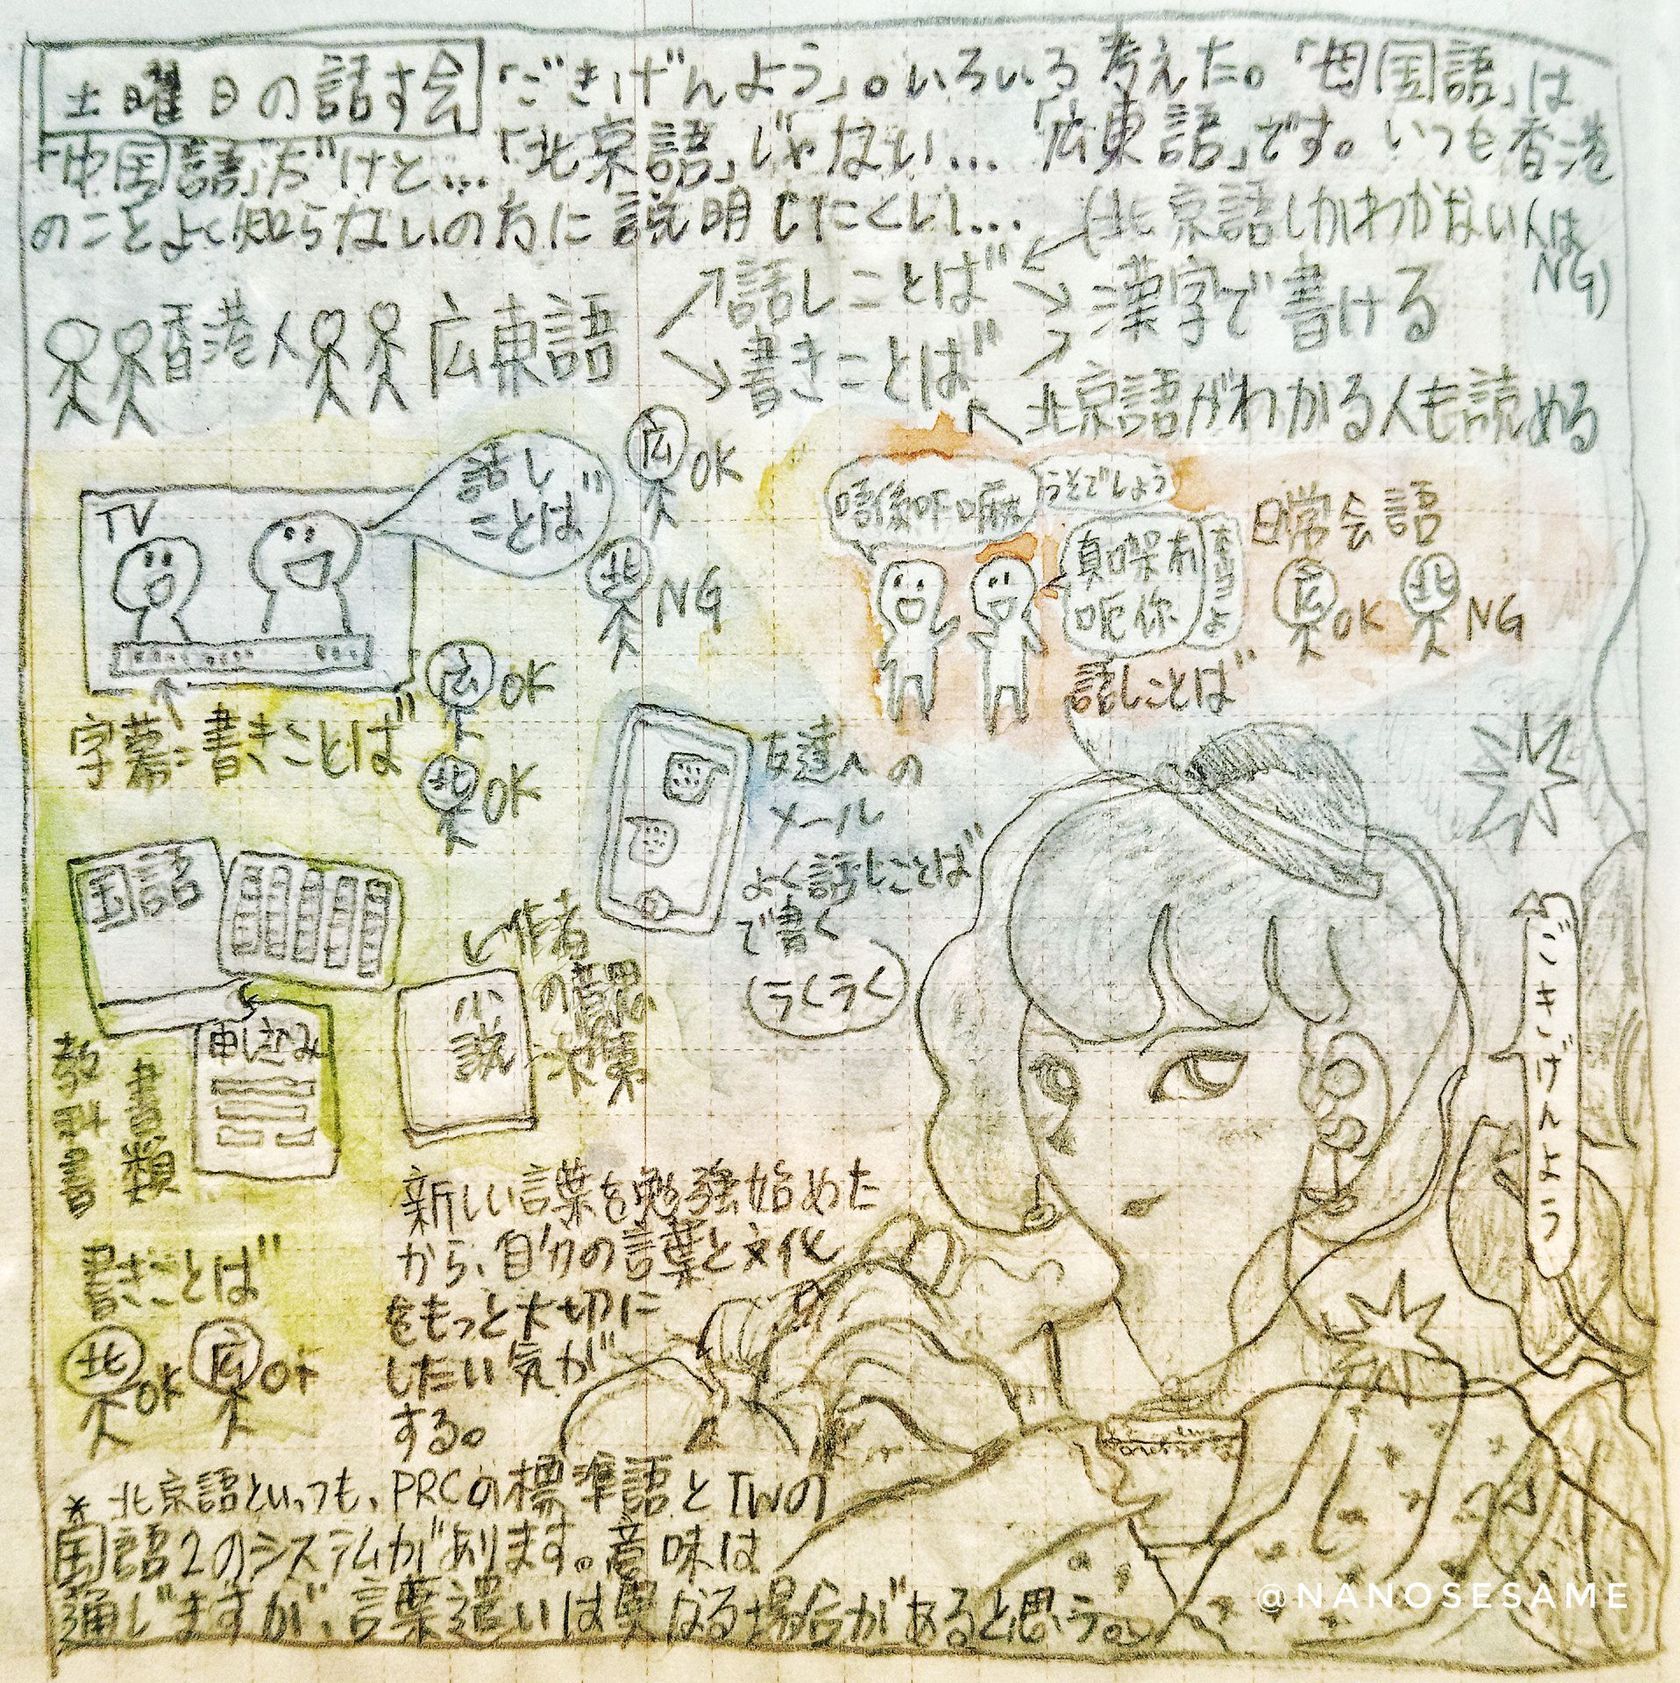 土曜日の話す会 「ごきげんよう」。いろいろ考えた。「母国語」は
「中国語」だけど…「北京語」じゃない…「広東語」です。いつも香港
のことよく知らないの方に説明しにくい…
(北京語しかわかない人は
NG)
香港人 広東語
話しことば
書きことば
漢字で書ける
北京語がわかる人も読める
TV
話し
ことば
広 OK
北 NG
字幕:書きことば
広 OK
北 OK
唔係吖嘛
うそでしょう
真㗎有
呃你
本当よ
話しことば
日常会話
広 OK 北 NG
友達への
メール
よく話しことば
で書く
(ラくラく
国語
申し込み
教科書
書類
小説
作者
の意思
決策
書きことば
北 OK 広 OK
新しい言葉を勉強始めた
から、自分の言葉と文化
をもっと大切に
したい気が
する。
ごきげんよう
* 北京語といっも、PRCの標準語とTWの
国語2のシステムがあります。意味は
通じますが、言葉遣いは異なる場合があると思う。
@NANOSESAME